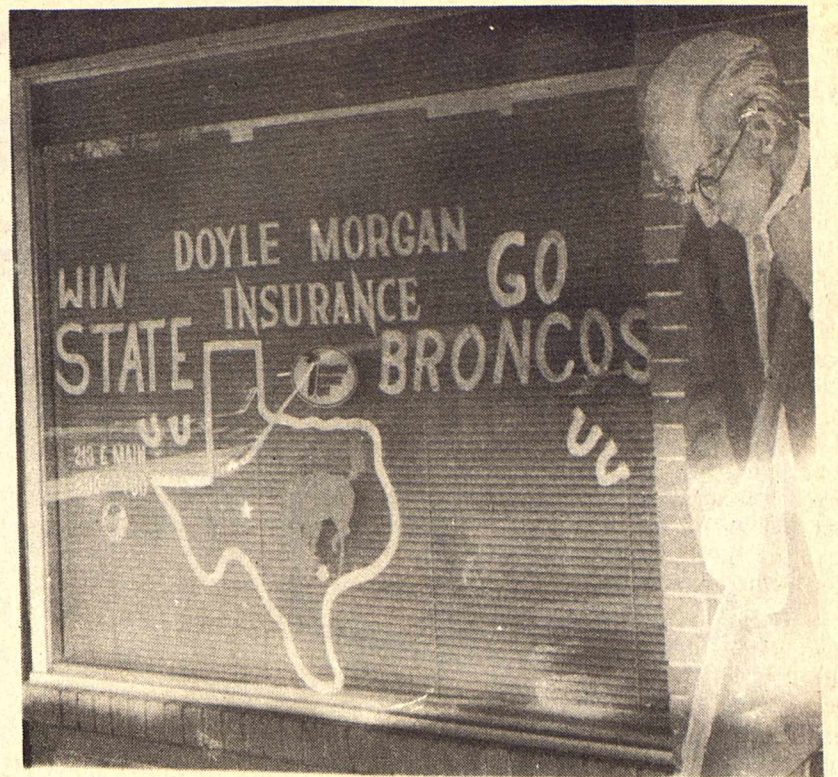 DOYLE MORGAN
INSURANCE
WIN
STATE
GO
BRONCOS
213 E MAIN